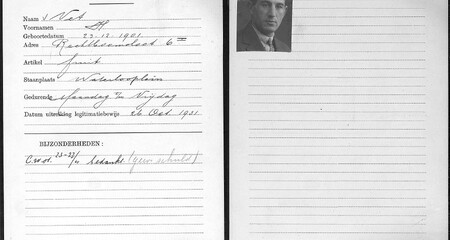 Naam : Vet
Voornamen
Geboortedatum 22-12-1901
Adres Rechtboomsloot 6 III
Artikel fruit
Staanplaats Waterlooplein
Gedurende Maandag t/m Vrijdag
Datum uitreiking legitimatiebewijs 26 Oct. 1931
BIJZONDERHEDEN :
bedankt (geen schuld)